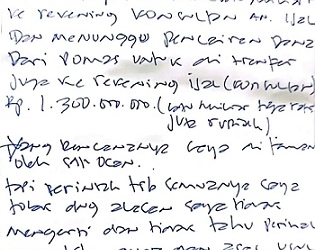 ke rekening konsultan an. ijal
dan menunggu pencairan dana
dari Pomas untuk di transfer
juga ke rekening ijal (konsultan)
Rp. 1.300.000.000. (satu miliar tiga ratus
juta rupiah)
yang rencananya saya di
oleh sdr Ocan.
tapi perintah tsb semuanya saya
tolak dng alasan saya tidak
mengerti dan tidak tahu